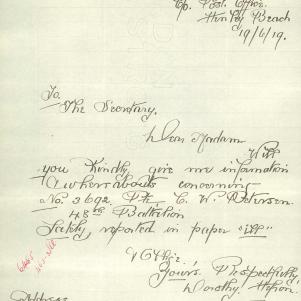 C/o Post Office.
Henley Beach
19/6/19.
To
The Secretary.
Dear Madam
Will
you Kindly give me information
& whereabouts concerning
No. 3692. Pte C. W. Peterson.
48th Battalion
Lately, reported in paper "ill"
Yours Respectfully
Dorothy
Address